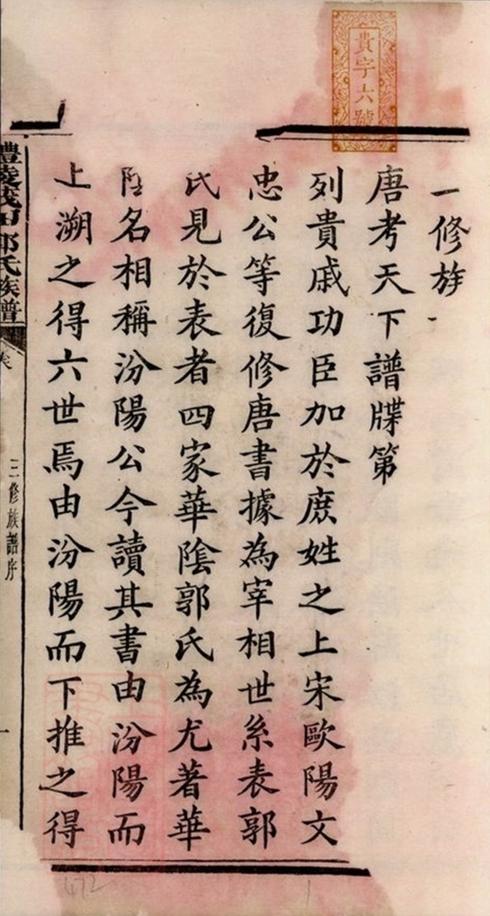 貴字六號
一修族
唐考天下譜牒第
列貴戚功臣加於庶姓之上宋歐陽文
忠公等復修唐書據為宰相世系表郭
氏見於表者四家華陰郭氏為尤著華
陰名相稱汾陽公今讀其書由汾陽而
上溯之得六世焉由汾陽而下推之得
醴陵茂田郭氏族譜
三修族譜序
一
472